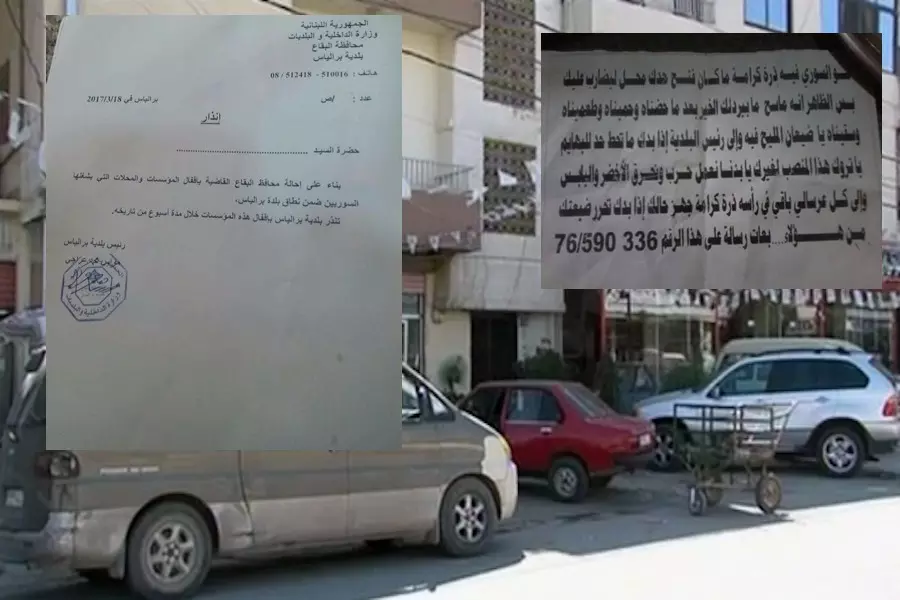 الجمهورية اللبنانية
وزارة الداخلية و البلديات
محافظة البقاع
بلدية برالياس
هاتف : 510016 - 512418 / 08
عدد : /ص
برالياس في 2017/3/18
إنذار
حضرة السيد ............................................
بناء على إحالة محافظ البقاع القاضية بإقفال المؤسسات والمحلات التي يشغلها
السوريين ضمن نطاق بلدة برالياس،
تنذر بلدية برالياس بإقفال هذه المؤسسات خلال مدة أسبوع من تاريخه.
رئيس بلدية برالياس
السوري فيه ذرة كرامة ما كان فتح حدك محل ليضارب عليك
بس الظاهر انه ماسح ما بيردلك الخير بعد ما حضناه وحميناه وطعميناه
وسقيناه يا ضيعان المليح فيه وإلى رئيس البلدية إذا بدك ما تحط حد للبهايم
يا تروك هذا المنصب لغيرك يا بدنا نعمل حرب ونحرق الأخضر واليابس
وإلى كل عرسالي باقي في رأسه ذرة كرامة جهز حالك إذا بدك تحرر ضيعتك
من هـــؤلاء....بعات رسالة على هذا الرقم 336 76/590